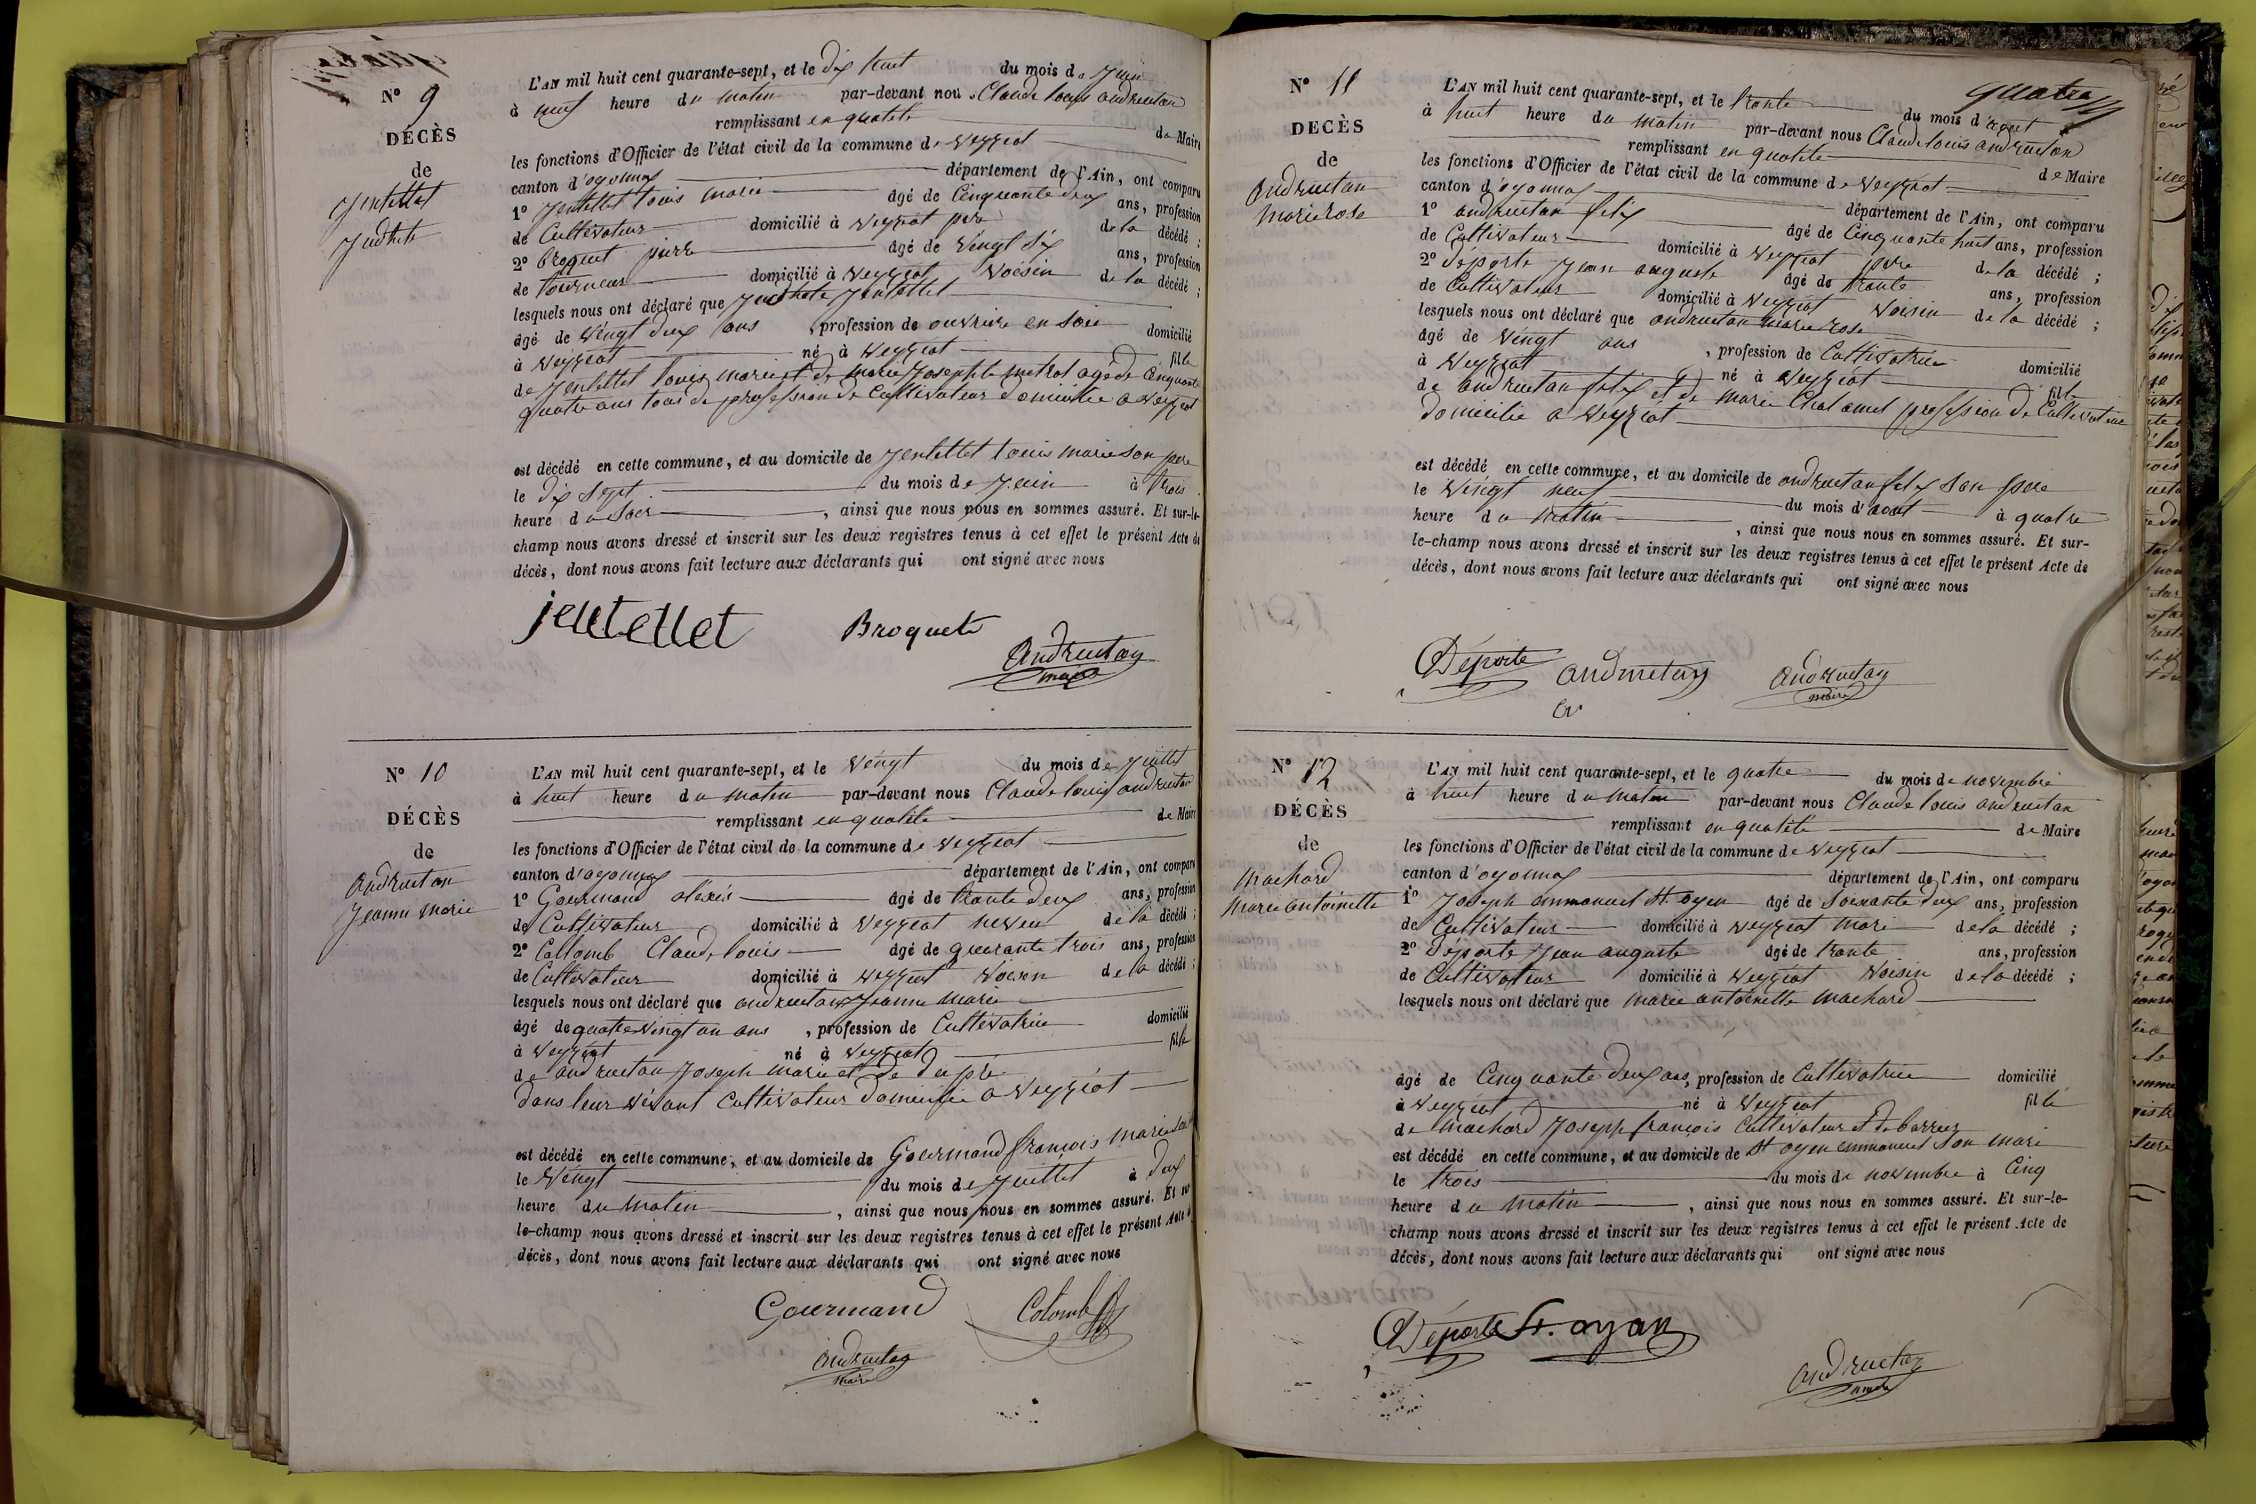 N° 9
DÉCÈS
de
Jentellet
Judhete
L'AN mil huit cent quarante-sept, et le dix huit du mois de Juin
à neuf heure du matin par-devant nous Claude louis andruetan
remplissant en qualité de Maire
les fonctions d'Officier de l'état civil de la commune de veyziat
canton d'oyonnax département de l'Ain, ont comparu
1° Jentellet louis marie âgé de Cinquante deux ans, profession
de Cultivateur domicilié à veyziat père de la décédé ;
2° broquet pierre âgé de vingt six ans, profession
de tourneur domicilié à veyziat voisin de la décédé ;
lesquels nous ont déclaré que Judhete Jentellet
âgé de vingt deux ans, profession de ouvrière en soie domicilié
à veyziat né à veyziat fille
de Jentellet louis marie et de marie Josephte metrol agé de Cinquante
quatre ans tous de profession de Cultivateur domicilié a veyziat
est décédé en cette commune, et au domicile de Jentellet louis marie son père
le dix sept du mois de Juin à trois
heure du soir, ainsi que nous nous en sommes assuré. Et sur-le-
champ nous avons dressé et inscrit sur les deux registres tenus à cet effet le présent Acte de
décès, dont nous avons fait lecture aux déclarants qui ont signé avec nous
jentellet Broquete
Andruetan
maire
N° 10
DÉCÈS
de
andruetan
Jeanne marie
L'AN mil huit cent quarante-sept, et le vingt du mois de Juillet
à huit heure du matin par-devant nous Claude louis andruetan
remplissant en qualité de Maire
les fonctions d'Officier de l'état civil de la commune de veyziat
canton d'oyonnax département de l'Ain, ont comparu
1° Gourmand aléxis âgé de trante deux ans, profession
de Cultivateur domicilié à veyziat neveu de la décédé ;
2° Collomb Claude louis âgé de quarante trois ans, profession
de Cultivateur domicilié à veyziat voisin de la décédé ;
lesquels nous ont déclaré que andruetan Jeanne marie
âgé de quatre vingt un ans, profession de Cultivatrice domicilié
à veyziat né à veyziat fille
de andruetan Joseph marie et de dupré
dans leur vivant Cultivateur domicilié a veyziat
est décédé en cette commune, et au domicile de Gourmand françois marie
le vingt du mois de Juillet à deux
heure du matin, ainsi que nous nous en sommes assuré. Et sur
le-champ nous avons dressé et inscrit sur les deux registres tenus à cet effet le présent Acte de
décès, dont nous avons fait lecture aux déclarants qui ont signé avec nous
Gourmand Colomb
andruetan
maire
quatre
N° 11
DÉCÈS
de
andruetan
marie rose
L'AN mil huit cent quarante-sept, et le trante du mois d'août
à huit heure du matin par-devant nous Claude louis andruetan
remplissant en qualité de Maire
les fonctions d'Officier de l'état civil de la commune de veyziat
canton d'oyonnax département de l'Ain, ont comparu
1° andruetan félix âgé de Cinquante huit ans, profession
de Cultivateur domicilié à veyziat père de la décédé ;
2° déporte Jean auguste âgé de trante ans, profession
de Cultivateur domicilié à veyziat voisin de la décédé ;
lesquels nous ont déclaré que andruetan marie rose
âgé de vingt ans, profession de Cultivatrice domicilié
à veyziat né à veyziat fille
de andruetan félix et de marie Chalamel profession de Cultivatrice
domicilié a veyziat
est décédé en cette commune, et au domicile de andruetan félix son père
le vingt neuf du mois d'août à quatre
heure du matin, ainsi que nous nous en sommes assuré. Et sur-
le-champ nous avons dressé et inscrit sur les deux registres tenus à cet effet le présent Acte de
décès, dont nous avons fait lecture aux déclarants qui ont signé avec nous
Déporte andruetan andruetan
maire
N° 12
DÉCÈS
de
Machard
Marie antoinette
L'AN mil huit cent quarante-sept, et le quatre du mois de novembre
à huit heure du matin par-devant nous Claude louis andruetan
remplissant en qualité de Maire
les fonctions d'Officier de l'état civil de la commune de veyziat
canton d'oyonnax département de l'Ain, ont comparu
1° Joseph emmanuel St oyen âgé de soixante deux ans, profession
de Cultivateur domicilié à veyziat mari de la décédé ;
2° déporte Jean auguste âgé de trante ans, profession
de Cultivateur domicilié à veyziat voisin de la décédé ;
lesquels nous ont déclaré que marie antoinette machard
âgé de Cinquante deux ans, profession de Cultivatrice domicilié
à veyziat né à veyziat fille
de machard Joseph françois Cultivateur et de barrer
est décédé en cette commune, et au domicile de St oyen emmanuel son mari
le trois du mois de novembre à Cinq
heure du matin, ainsi que nous nous en sommes assuré. Et sur-le-
champ nous avons dressé et inscrit sur les deux registres tenus à cet effet le présent Acte de
décès, dont nous avons fait lecture aux déclarants qui ont signé avec nous
Déporte St. oyan
andruetan
maire